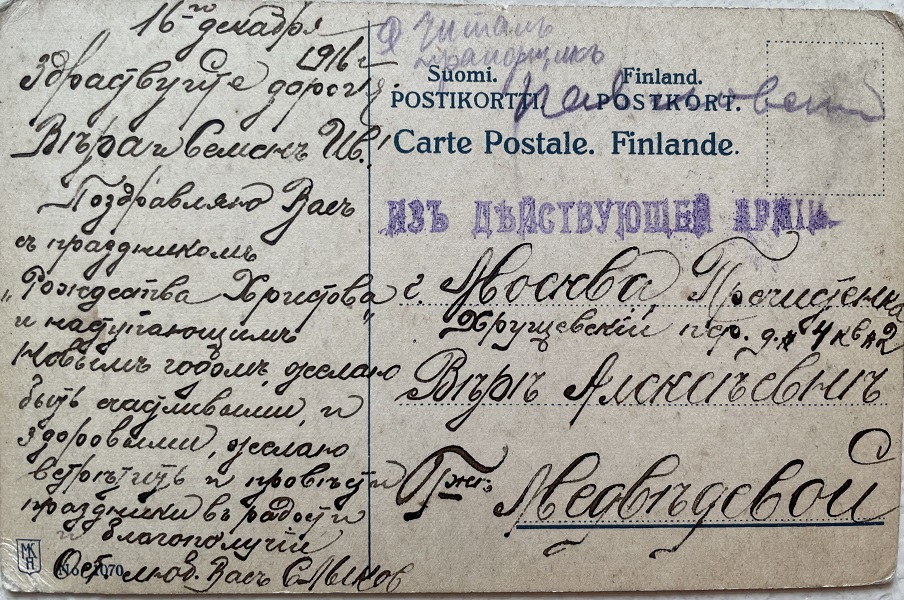 16го декабря
1916 г.
Здраствуйте дорогіе
Вѣра и Семенъ Ив.!
Поздравляю Васъ
съ праздникомъ
„Рождества Христова“
и наступающимъ
Новымъ годомъ, желаю
быть счастливыми, и
здоровыми, желаю
встрѣтить и провѣсти
праздники въ радости
и благополучіи
Ост. люб. Васъ
No. 2070
МК
Н
Я читалъ
прапорщикъ
Suomi. Finland.
POSTIKORTTI. POSTKORT.
Carte Postale. Finlande.
ИЗЪ ДѢЙСТВУЮЩЕЙ АРМІИ.
г. Москва Пречистенка
Хрущевскій пер. д. 4 кв 2
Вѣрѣ Алексѣевнѣ
Гжѣ Медвѣдевой